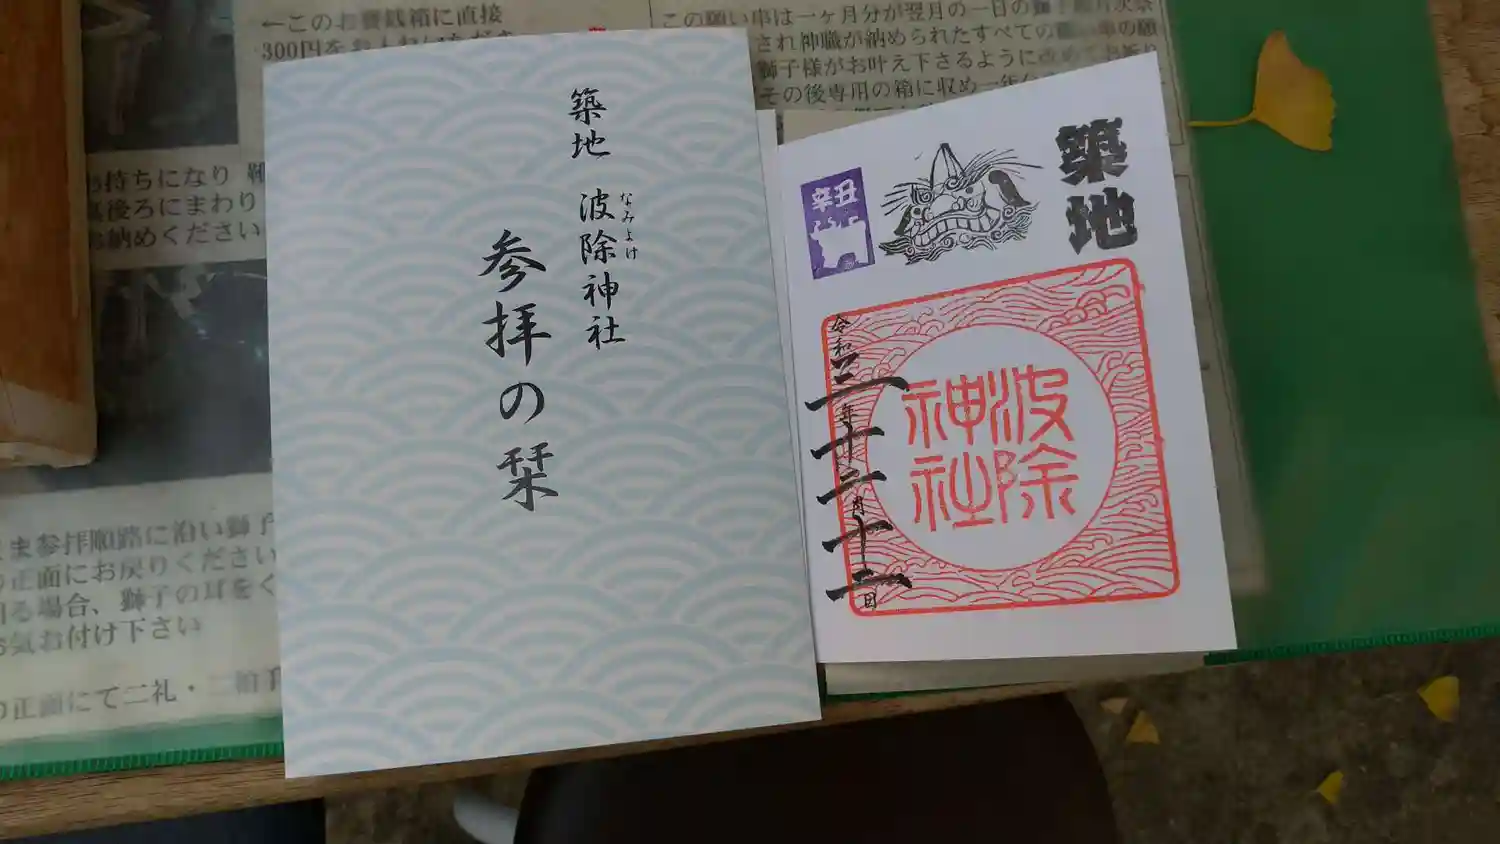 ←このお賽銭箱に直接
300円を
この願い串は一ヶ月分が翌月の一日の獅子殿月次祭
され神職が納められたすべての願い串の願
獅子様がお叶え下さるように改めてお祈り
その後専用の箱に収め一年
お持ちになり
後ろにまわり
お納めください
ま参拝順路に沿い獅子
正面にお戻りください
る場合、獅子の耳をく
気お付け下さい
の正面にて二礼・二拍手
築地 波除神社
なみよけ
参拝の栞
築地
辛丑
波除
神社
令和三年十二月十二日